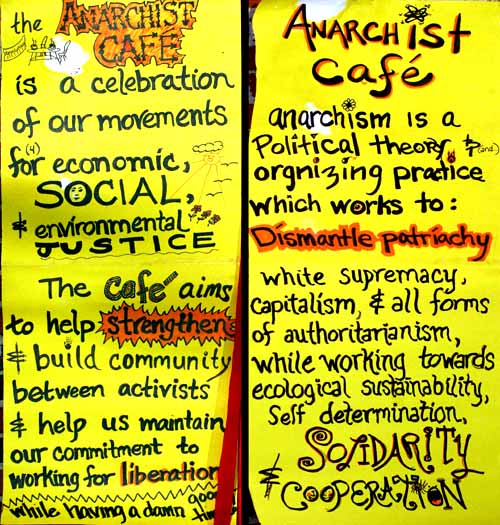 the ANARCHIST
CAFÉ
is a celebration
of our movements
for (4) economic,
SOCIAL,
& environmental
JUSTICE
The café aims
to help strengthen
& build community
between activists
& help us maintain
our commitment to
working for liberation
while having a damn good time
ANARCHIST
café
anarchism is a
Political theory & (and)
orgnizing practice
which works to:
Dismantle patriachy
white supremacy,
capitalism, & all forms
of authoritarianism,
while working towards
ecological sustainability,
Self determination,
SOLIDARITY
& COOPERATION